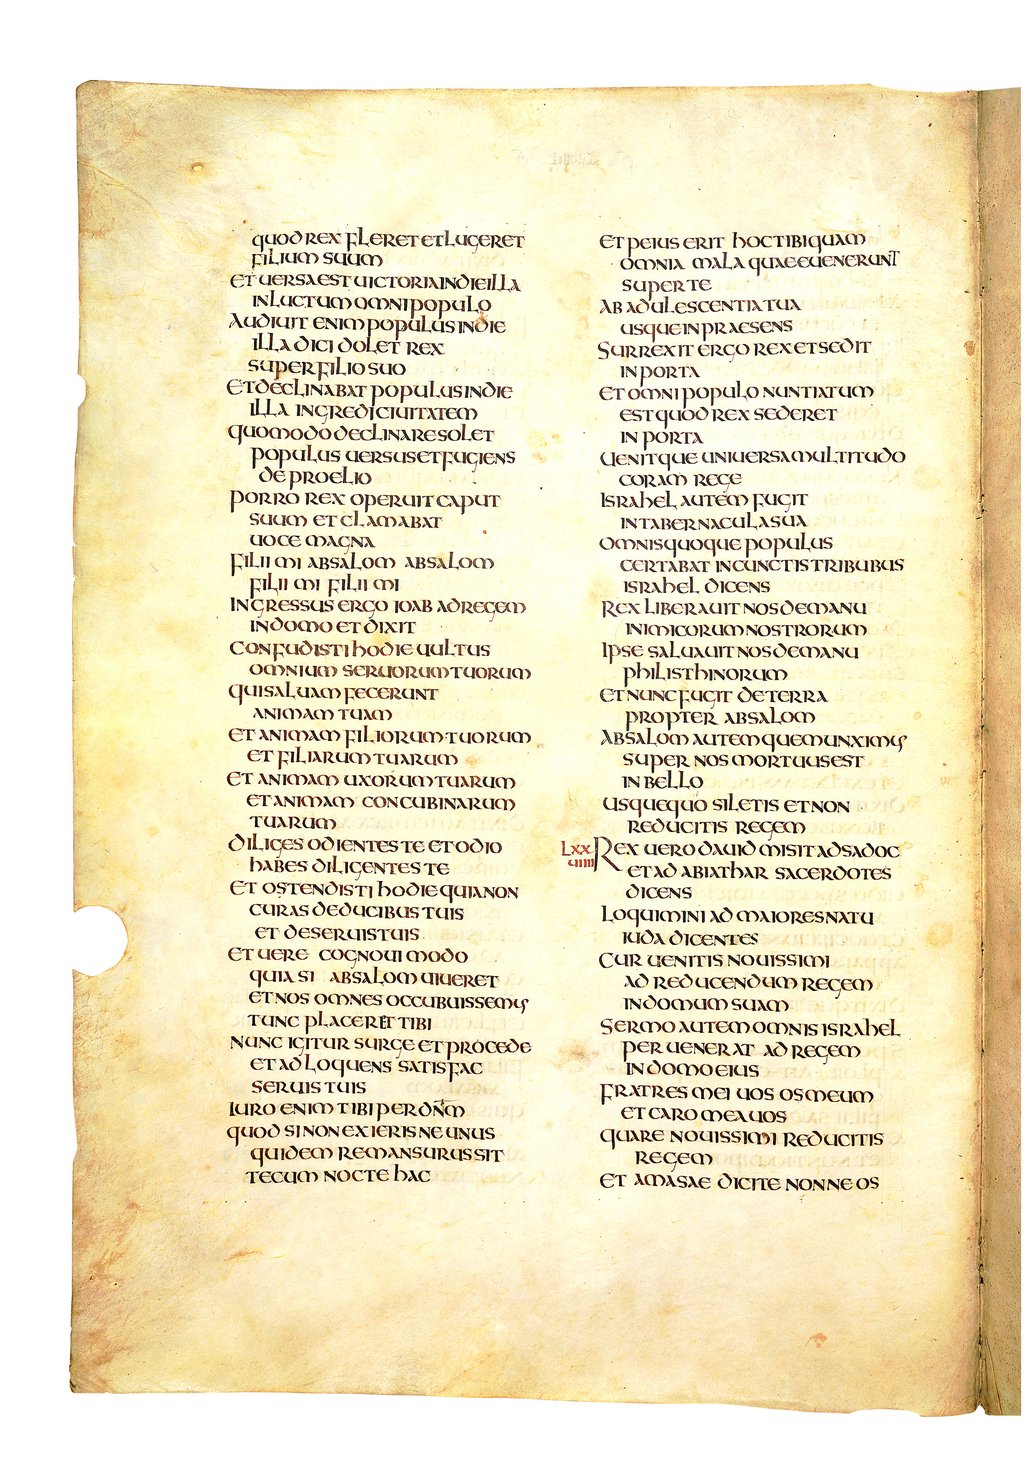 quod rex fleret et lugeret
filium suum
et uersa est uictoria in die illa
in luctum omni populo
audiuit enim populus in die
illa dici dolet rex
super filio suo
et declinabat populus in die
illa ingredi ciuitatem
quomodo declinare solet
populus uersus et fugiens
de proelio
porro rex operuit caput
suum et clamabat
uoce magna
fili mi absalom absalom
fili mi fili mi
ingressus ergo ioab ad regem
in domo et dixit
confudisti hodie uultus
omnium seruorum tuorum
qui saluam fecerunt
animam tuam
et animam filiorum tuorum
et filiarum tuarum
et animam uxorum tuarum
et animam concubinarum
tuarum
diliges odientes te et odio
habes diligentes te
et ostendisti hodie quia non
curas de ducibus tuis
et de seruis tuis
et uere cognoui modo
quia si absalom uiueret
et nos omnes occubuissemus
tunc placeret tibi
nunc igitur surge et procede
et adloquens satisfac
seruis tuis
iuro enim tibi per dnm
quod si non exieris ne unus
quidem remansurus sit
tecum nocte hac
et peius erit hoc tibi quam
omnia mala quae euenerunt
super te
ab adulescentia tua
usque in praesens
surrexit ergo rex et sedit
in porta
et omni populo nuntiatum
est quod rex sederet
in porta
uenitque uniuersa multitudo
coram rege
israhel autem fugit
in tabernacula sua
omnis quoque populus
certabat in cunctis tribubus
israhel dicens
rex liberauit nos de manu
inimicorum nostrorum
ipse saluauit nos de manu
philisthinorum
et nunc fugit de terra
propter absalom
absalom autem quem unximus
super nos mortuus est
in bello
usquequo siletis et non
reducitis regem
LXX
uiiii
Rex uero dauid misit ad sadoc
et ad abiathar sacerdotes
dicens
loquimini ad maiores natu
iuda dicentes
cur uenitis nouissimi
ad reducendum regem
in domum suam
sermo autem omnis israhel
peruenerat ad regem
in domo eius
fratres mei uos os meum
et caro mea uos
quare nouissimi reducitis
regem
et amasae dicite nonne os